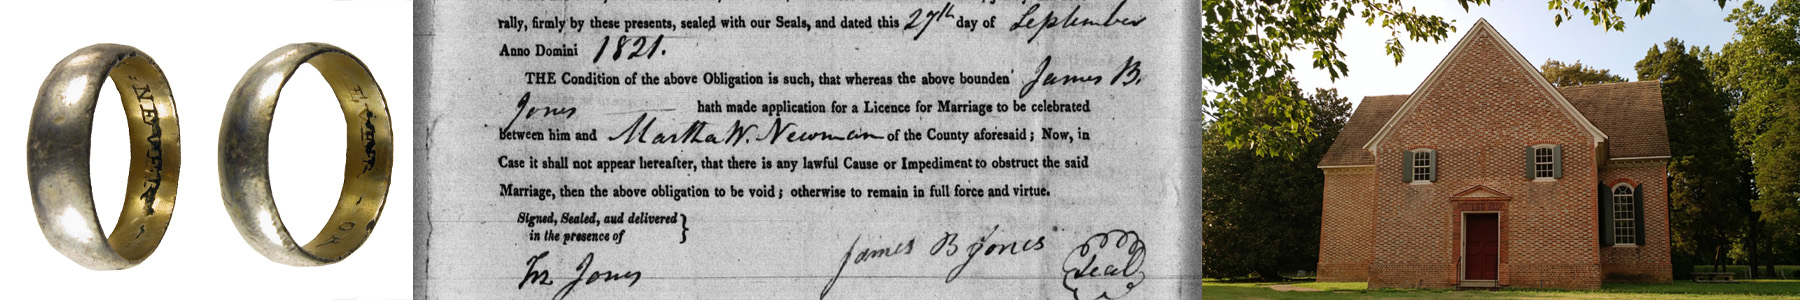 rally, firmly by these presents, sealed with our Seals, and dated this 27th day of September
Anno Domini 1821.
THE Condition of the above Obligation is such, that whereas the above bounden James B.
Jones hath made application for a Licence for Marriage to be celebrated
between him and Martha W. Newman of the County aforesaid; Now, in
Case it shall not appear hereafter, that there is any lawful Cause or Impediment to obstruct the said
Marriage, then the above obligation to be void; otherwise to remain in full force and virtue.
Signed, Sealed, and delivered
in the presence of
James B Jones
Seal
Jones